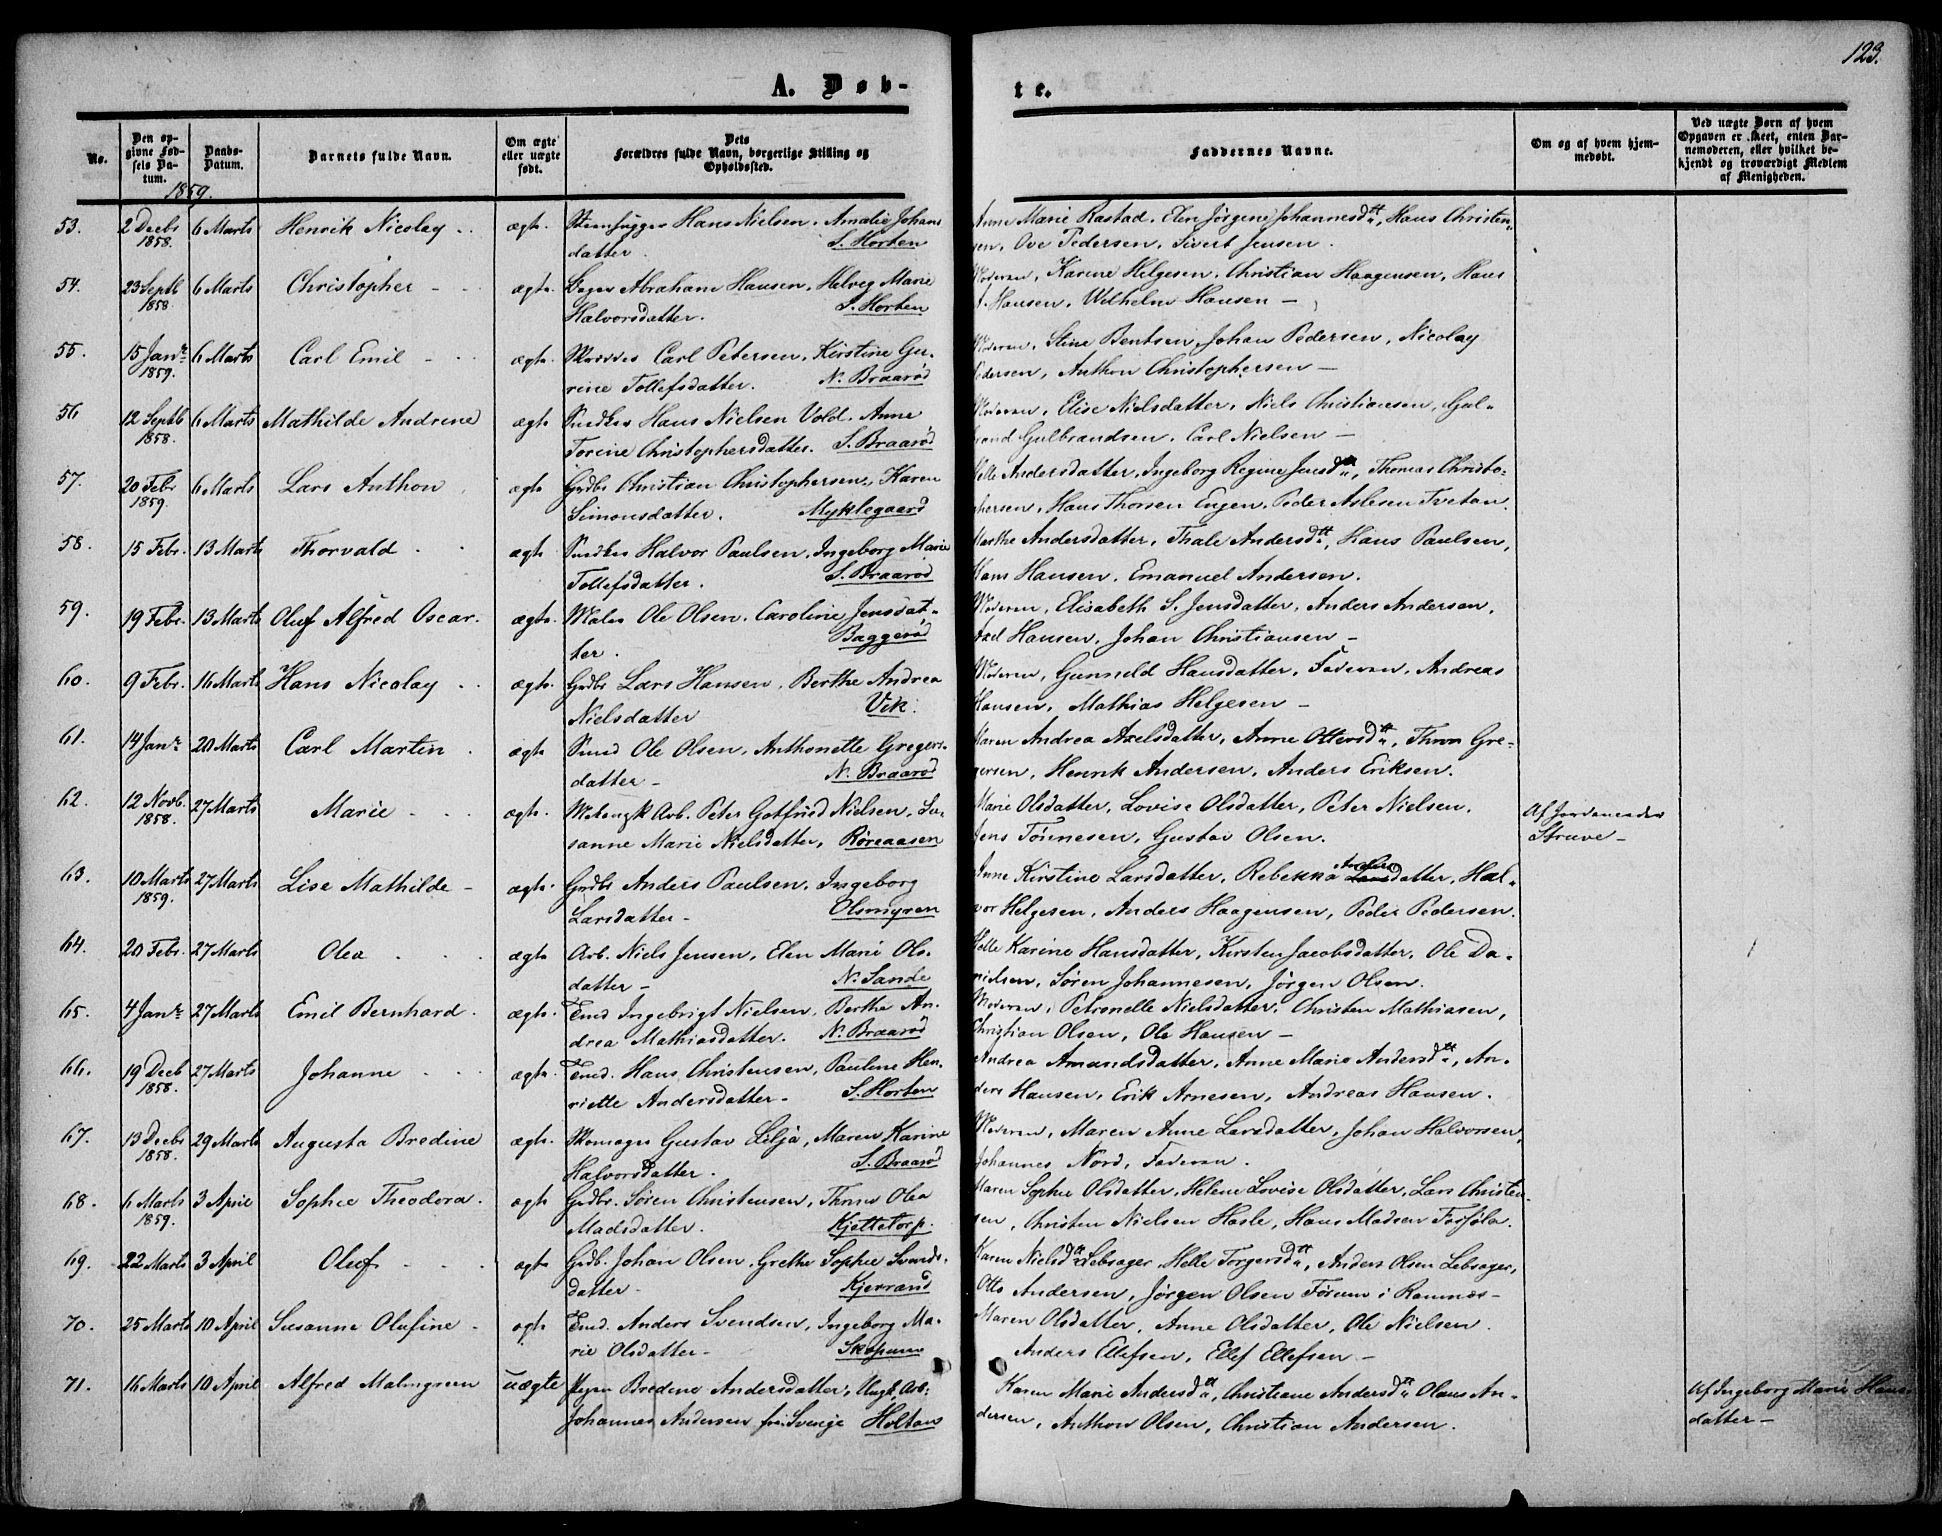 123.
A. Døb-
te.
No.
Den op-
givne Fød-
sels Da-
tum.
Daabs-
Datum.
Barnets fulde Navn.
Om ægte
eller uægte
født.
Dets
Forældres fulde Navn, borgerlige Stilling og
Opholdssted.
Faddernes Navne.
Om og af hvem hjem-
medøbt.
Ved uægte Børn af hvem
Opgaven er skeet, enten Bar-
nemoderen, eller hvilket be-
kjendt og troværdigt Medlem
af Menigheden.
1859.
53. 2 Decbr 6 Marts Henrik Nicolay ægte. Hans Nielsen, Amalie Johans Anne Marie Rastad, Elen Jørgine Johannesdtt, Hans Christen-
1858. datter. S. Horten sen, Ove Pedersen, Sivert Jensen.
54. 23 Septb 6 Marts Christopher ægte. Bager Abraham Hansen, Helvig Marie Moderen, Karine Helgesen, Christian Haagensen, Hans
1858. Halvorsdatter. S. Horten Hansen, Wilhelm Hansen
55. 15 Janr 6 Marts Carl Emil ægte. Carl Petersen, Kirstine Gu- Moderen, Stine Bentsen, Johan Pedersen, Nicolay
1859. rine Tollefsdatter. N. Braarød Pedersen, Anthon Christophersen
56. 12 Septb 6 Marts Mathilde Andrine ægte Snedker Hans Nielsen Vold, Anne Moderen, Elise Nielsdatter, Niels Christiansen, Gul-
1858. Torine Christophersdatter. S. Braarød brand Gulbrandsen, Carl Nielsen
57. 20 Febr 6 Marts Lars Anthon ægte Grdbr Christian Christophersen, Karen Helle Andersdatter, Ingeborg Regine Jensdtt, Thomas Christo-
1859. Simonsdatter. Myklegaard phersen, Hans Thorsen Engen, Peder Aslesen Tvetan.
58. 15 Febr. 13 Marts Thorvald ægte Snedker Halvor Paulsen, Ingeborg Marie Marthe Andersdatter, Thale Andersdtt, Hans Paulsen,
Tollefsdatter. S. Braarød Hans Hansen, Emanuel Andersen.
59. 19 Febr. 13 Marts Oluf Alfred Oscar. ægte. Maler Ole Olsen, Caroline Jensdat- Moderen, Elisabeth S. Jensdatter, Anders Andersen,
ter. Baggerød Axel Hansen, Johan Christiansen
60. 9 Febr. 16 Marts Hans Nicolay ægte. Grdbr Lars Hansen, Berthe Andrea Moderen, Gunnild Hansdatter, Faderen, Andreas
Nielsdatter Vik. Hansen, Mathias Helgesen
61. 14 Janr 20 Marts Carl Martin ægte Smed Ole Olsen, Anthonette Gregers- Maren Andrea Axelsdatter, Anne Ottersdtt, Thron Gre-
datter N. Braarød gersen, Henrik Andersen, Anders Eriksen.
62. 12 Novb. 27 Marts Marie ægte. Arb. Peter Gotfried Nielsen, Su- Marie Olsdatter, Lovise Olsdatter, Peter Nielsen. Af Jordemoder
1858. sanne Marie Nielsdatter, Røreaasen Jens Tønnesen, Gustav Olsen. Struve
63. 10 Marts 27 Marts Lise Mathilde ægte. Grdbr Anders Paulsen, Ingeborg Anne Kirstine Larsdatter, Rebekka Andersdatter, Hal-
1859. Larsdatter Olsmyren vor Helgesen, Anders Haagensen, Peder Pedersen.
64. 20 Febr. 27 Marts Olea ægte Arb. Niels Jensen, Elen Marie Ols- Helle Karine Hansdatter, Kirsten Jacobsdatter, Ole Da-
datter N. Sande nielsen, Søren Johannesen, Jørgen Olsen.
65. 4 Janr 27 Marts Emil Bernhard. ægte. Tmd Ingebrigt Nielsen, Berthe An- Moderen, Petronelle Nielsdatter, Christen Mathiasen,
drea Mathiasdatter. N. Braarød Christian Olsen, Ole Hansen
66. 19 Decb 27 Marts Johanne ægte. Tmd. Hans Christensen, Pauline Hen- Andrea Amandsdatter, Anne Marie Andersdtt, An-
1858. riette Andersdatter S. Horten ders Hansen, Erik Arnesen, Andreas Hansen.
67. 13 Decbr 29 Marts Augusta Bredine ægte. Skomager Gustav Lilja, Maren Karine Moderen, Maren Anne Larsdatter, Johan Halvorsen,
1858. Halvorsdatter. S. Braarød Johannes Nord, Faderen.
68. 6 Marts 3 April Sophie Theodora. ægte Grdbr. Søren Christensen, Thrine Olea Maren Sophie Olsdatter, Helene Lovise Olsdatter, Lars Christen-
1859. Madsdatter. Kjettetorp. sen, Christen Nielsen Hasle, Hans Madsen
69. 22 Marts 3 April Oluf ægte Grdb. Johan Olsen, Grethe Sophie Svends- Karen Nielsdtt Lebsager, Helle Torgersdtt, Anders Olsen Lebsager,
datter Kjerrand Otto Andersen, Jørgen Olsen i Ramnæs
70. 25 Marts 10 April Susanne Olufine ægte Tmd. Anders Svendsen, Ingeborg Ma- Maren Olsdatter, Anne Olsdatter, Ole Nielsen.
rie Olsdatter Skopum Anders Ellefsen, Ellef Ellefsen
71. 16 Marts 10 April Alfred Malmgreen uægte Pigen Bredine Andersdatter, Ungk. Arb. Karen Marie Andersdtt, Christiane Andersdtt Olaus An- Af Ingeborg Marie Hans-
Johannes Andersen fra Sverige Holtans dersen, Anthon Olsen, Christian Andersen. datter